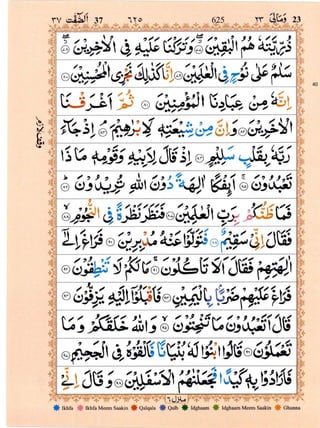 ٣٧ الصّٰٓفّٰت 37 ٦٢٥ 625 ٢٣ وَمَالِیَ 23
ذُرِّیَّتَهٗ هُمُ الْبٰقِیْنَ ﴿٧٧﴾ وَ تَرَكْنَا عَلَیْهِ فِی الْاٰخِرِیْنَ ﴿٧٨﴾
سَلٰمٌ عَلٰی نُوْحٍ فِی الْعٰلَمِیْنَ ﴿٧٩﴾ اِنَّا كَذٰلِكَ نَجْزِی الْمُحْسِنِیْنَ ﴿٨٠﴾
اِنَّهٗ مِنْ عِبَادِنَا الْمُؤْمِنِیْنَ ﴿٨١﴾ ثُمَّ اَغْرَقْنَا
الْاٰخَرِیْنَ ﴿٨٢﴾ وَ اِنَّ مِنْ شِیْعَتِهٖ لَاِبْرٰهِیْمَ ﴿٨٣﴾ اِذْ جَآءَ
رَبَّهٗ بِقَلْبٍ سَلِیْمٍ ﴿٨٤﴾ اِذْ قَالَ لِاَبِیْهِ وَ قَوْمِهٖ مَا ذَا
تَعْبُدُوْنَ ﴿٨٥﴾ اَىِٕفْكًا اٰلِهَةً دُوْنَ اللّٰهِ تُرِیْدُوْنَ ﴿٨٦﴾
فَمَا ظَنُّكُمْ بِرَبِّ الْعٰلَمِیْنَ ﴿٨٧﴾ فَنَظَرَ نَظْرَةً فِی النُّجُوْمِ ﴿٨٨﴾
فَقَالَ اِنِّیْ سَقِیْمٌ ﴿٨٩﴾ فَتَوَلَّوْا عَنْهُ مُدْبِرِیْنَ ﴿٩٠﴾ فَرَاغَ اِلٰۤی
اٰلِهَتِهِمْ فَقَالَ اَلَا تَاْكُلُوْنَ ﴿٩١﴾ مَا لَكُمْ لَا تَنْطِقُوْنَ ﴿٩٢﴾
فَرَاغَ عَلَیْهِمْ ضَرْبًۢا بِالْیَمِیْنِ ﴿٩٣﴾ فَاَقْبَلُوْۤا اِلَیْهِ یَزِفُّوْنَ ﴿٩٤﴾
قَالَ اَتَعْبُدُوْنَ مَا تَنْحِتُوْنَ ﴿٩٥﴾ وَ اللّٰهُ خَلَقَكُمْ وَ مَا
تَعْمَلُوْنَ ﴿٩٦﴾ قَالُوا ابْنُوْا لَهٗ بُنْیَانًا فَاَلْقُوْهُ فِی الْجَحِیْمِ ﴿٩٧﴾
فَاَرَادُوْا بِهٖ كَیْدًا فَجَعَلْنٰهُمُ الْاَسْفَلِیْنَ ﴿٩٨﴾ وَ قَالَ اِنِّیْ
منزل ٦
Ikhfa Ikhfa Meem Saakin Qalqala Qalb Idghaam Idghaam Meem Saakin Ghunna